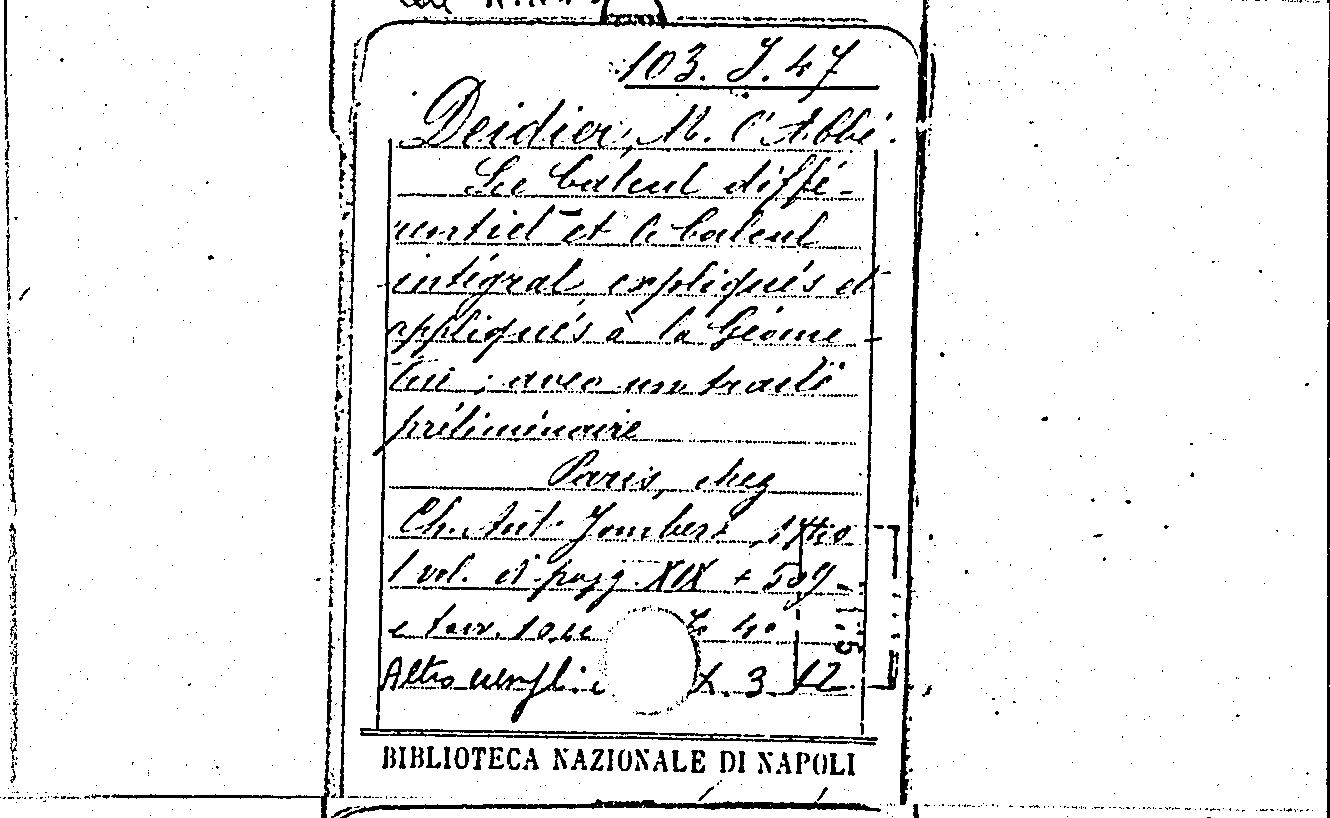 103. J. 47
Deidier, M. l'Abbé.
Le Calcul diffé-
rentiel et le Calcul
intégral expliqués et
appliqués à la Géomé-
trie ; avec un traité
préliminaire
Paris, chez
Ch. Ant. Jombert, 1740
1 vol. di pagg XIX + 509
e tav. 10 in 40
Altro esempl. X. 3 12
BIBLIOTECA NAZIONALE DI NAPOLI